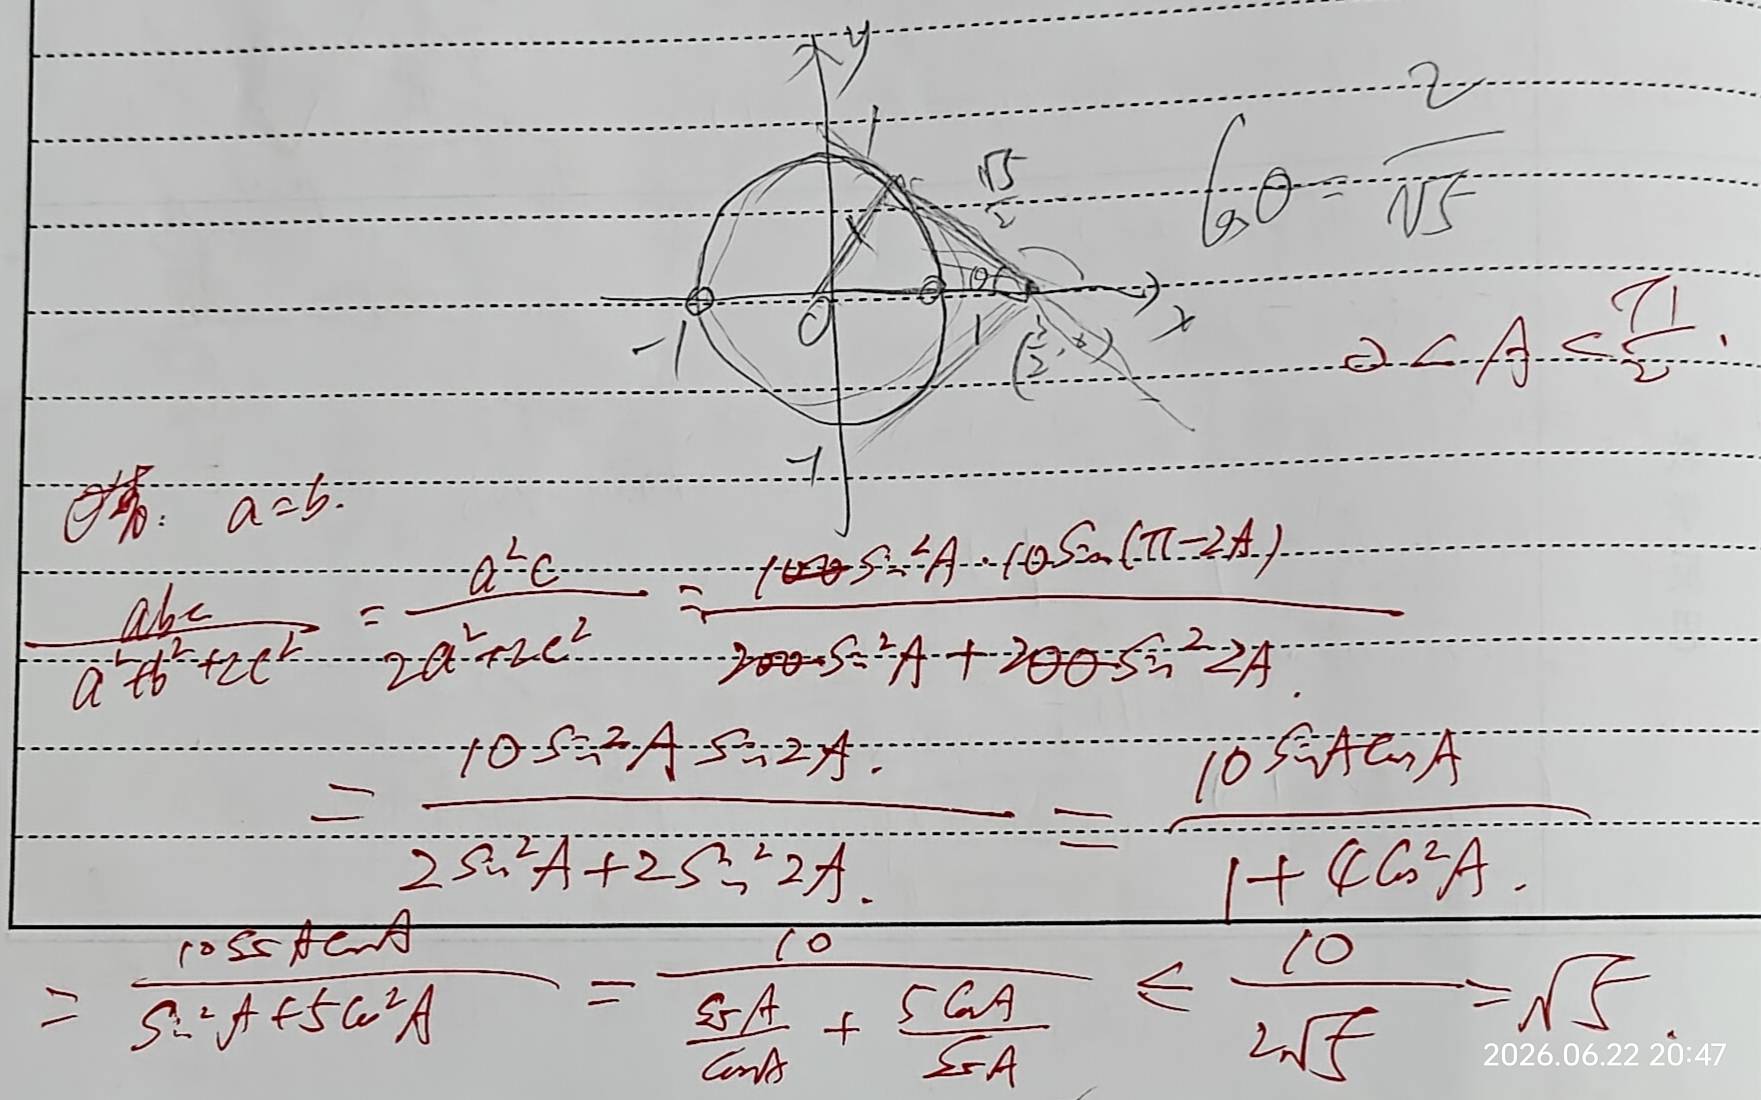 y
1
√5/2
cosθ = 2/√5
θ
-1 O 1 (3/2, 0) x
0 < A < π/2.
-1
a=b.
abc/(a²+b²+2c²) = a²c/(2a²+2c²) = 100sin²A·10sin(π-2A)/(200sin²A+200sin²2A).
= 10sin²A sin2A/(2sin²A+2sin²2A). = 10sinAcosA/(1+4cos²A).
= 10sinAcosA/(sin²A+5cos²A) = 10/(sinA/cosA + 5cosA/sinA) ≤ 10/(2√5) = √5.
2026.06.22 20:47